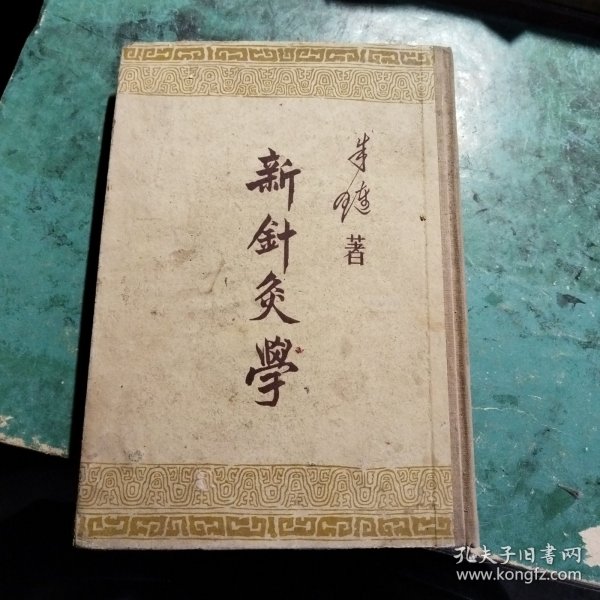 朱璉 著
新針灸學
孔夫子旧書网
www.kongfz.com